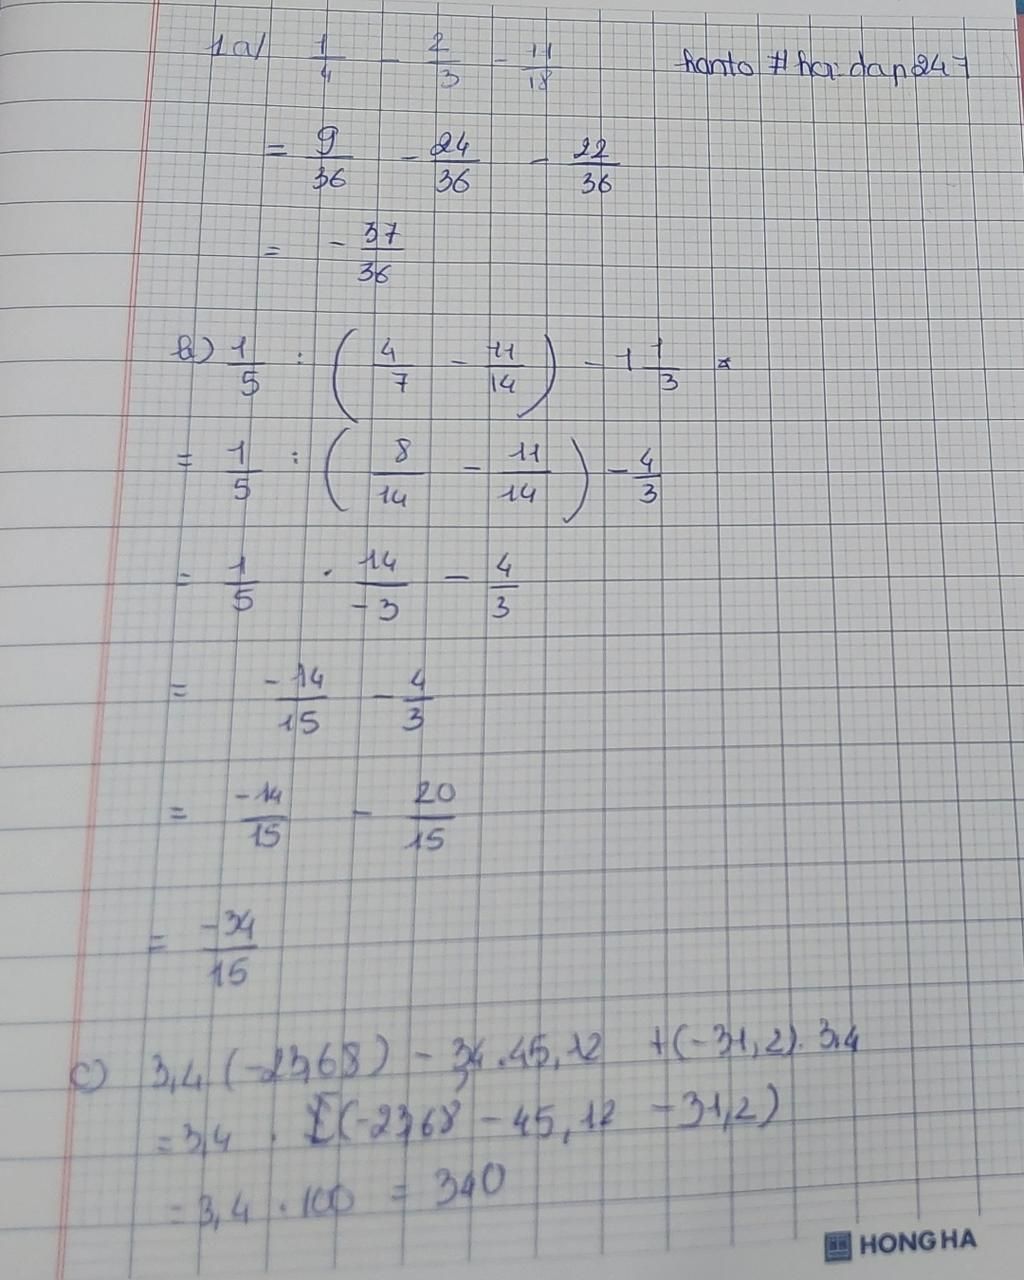 1a) 1/4 - 2/3 - 11/18 hanto # hoidap247
= 9/36 - 24/36 - 22/36
= - 37/36
b) 1/5 : ( 4/7 - 11/14 ) - 1 1/3
= 1/5 : ( 8/14 - 11/14 ) - 4/3
= 1/5 . 14/-3 - 4/3
= -14/15 - 4/3
= -14/15 - 20/15
= -34/15
c) 3,4 (-23,68) - 3,4 . 45,12 + (-31,2) . 3,4
= 3,4 . [(-23,68 - 45,12 - 31,2)
= 3,4 . 100 = 340
HONG HA